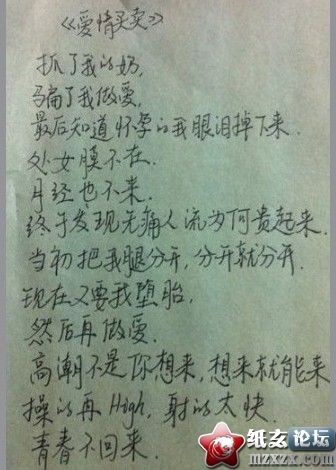 《爱情买卖》
抓了我的奶,
骗了我做爱,
最后知道怀孕的我眼泪掉下来.
处女膜不在.
月经也不来.
终于发现无痛人流为何贵起来.
当初把我腿分开,分开就分开.
现在又要我堕胎,
然后再做爱.
高潮不是你想来,想来就能来
操的再High,射的太快
青春不回来.
纸玄论坛
mzxzx.com